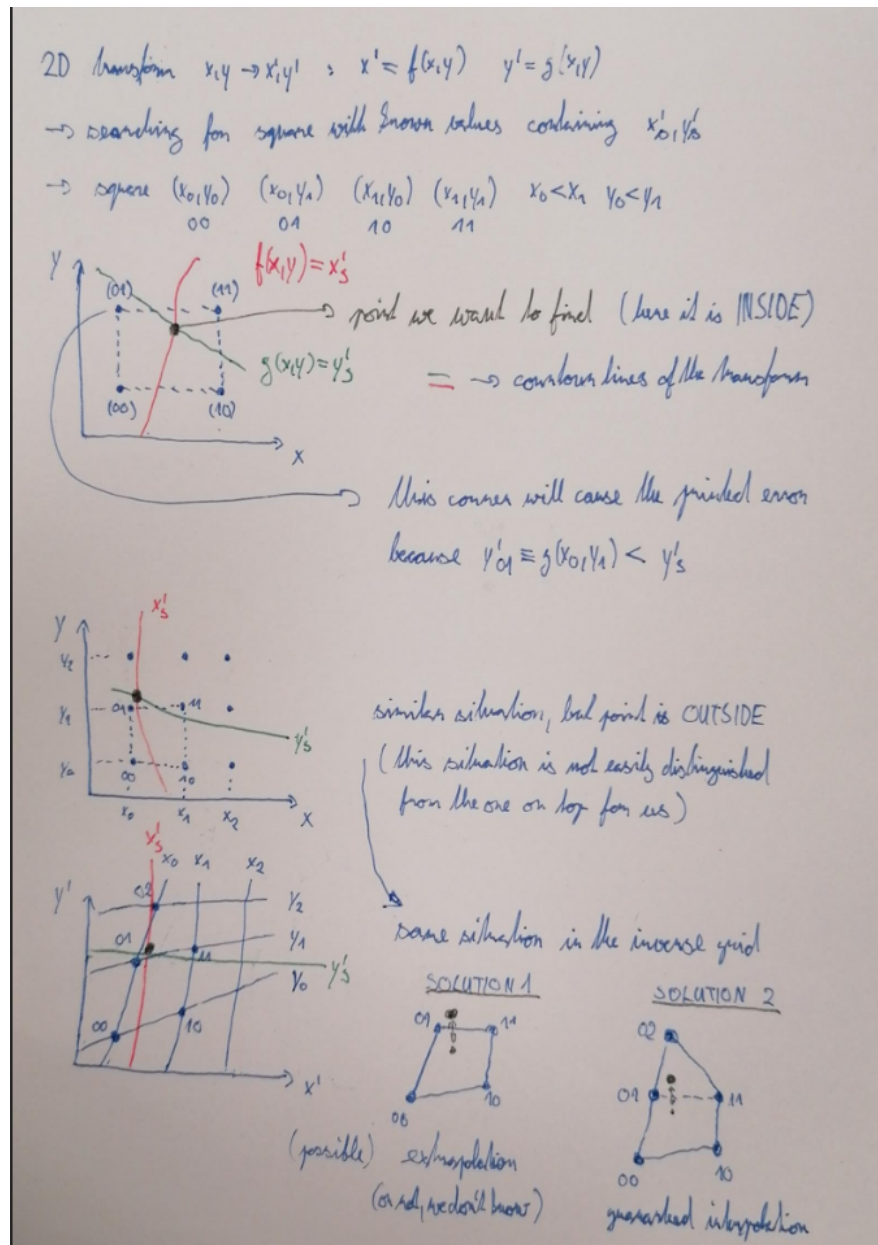 2D transform x,y → x',y' : x' = f(x,y) y' = g(x,y)
→ searching for square with known values containing x's, y's
→ square (x0,y0) (x0,y1) (x1,y0) (x1,y1) x0<x1 y0<y1
00 01 10 11
y
f(x,y)=x's
(01) (11)
→ point we want to find (here it is INSIDE)
g(x,y)=y's
= → countour lines of the transform
(00) (10)
x
→ this corner will cause the printed error
because y'01 ≡ g(x0,y1) < y's
x's
y
y2
y1 01 11
y's
y0 00 10
x0 x1 x2 x
similar situation, but point is OUTSIDE
(this situation is not easily distinguished
from the one on top for us)
x's x0 x1 x2
y' 02 y2
01 11 y1
y's
y0
00 10
x'
same situation in the inverse grid
SOLUTION 1
01 11
00 10
(possible) extrapolation
(or not, we don't know)
SOLUTION 2
02
01 11
00 10
guaranteed interpolation